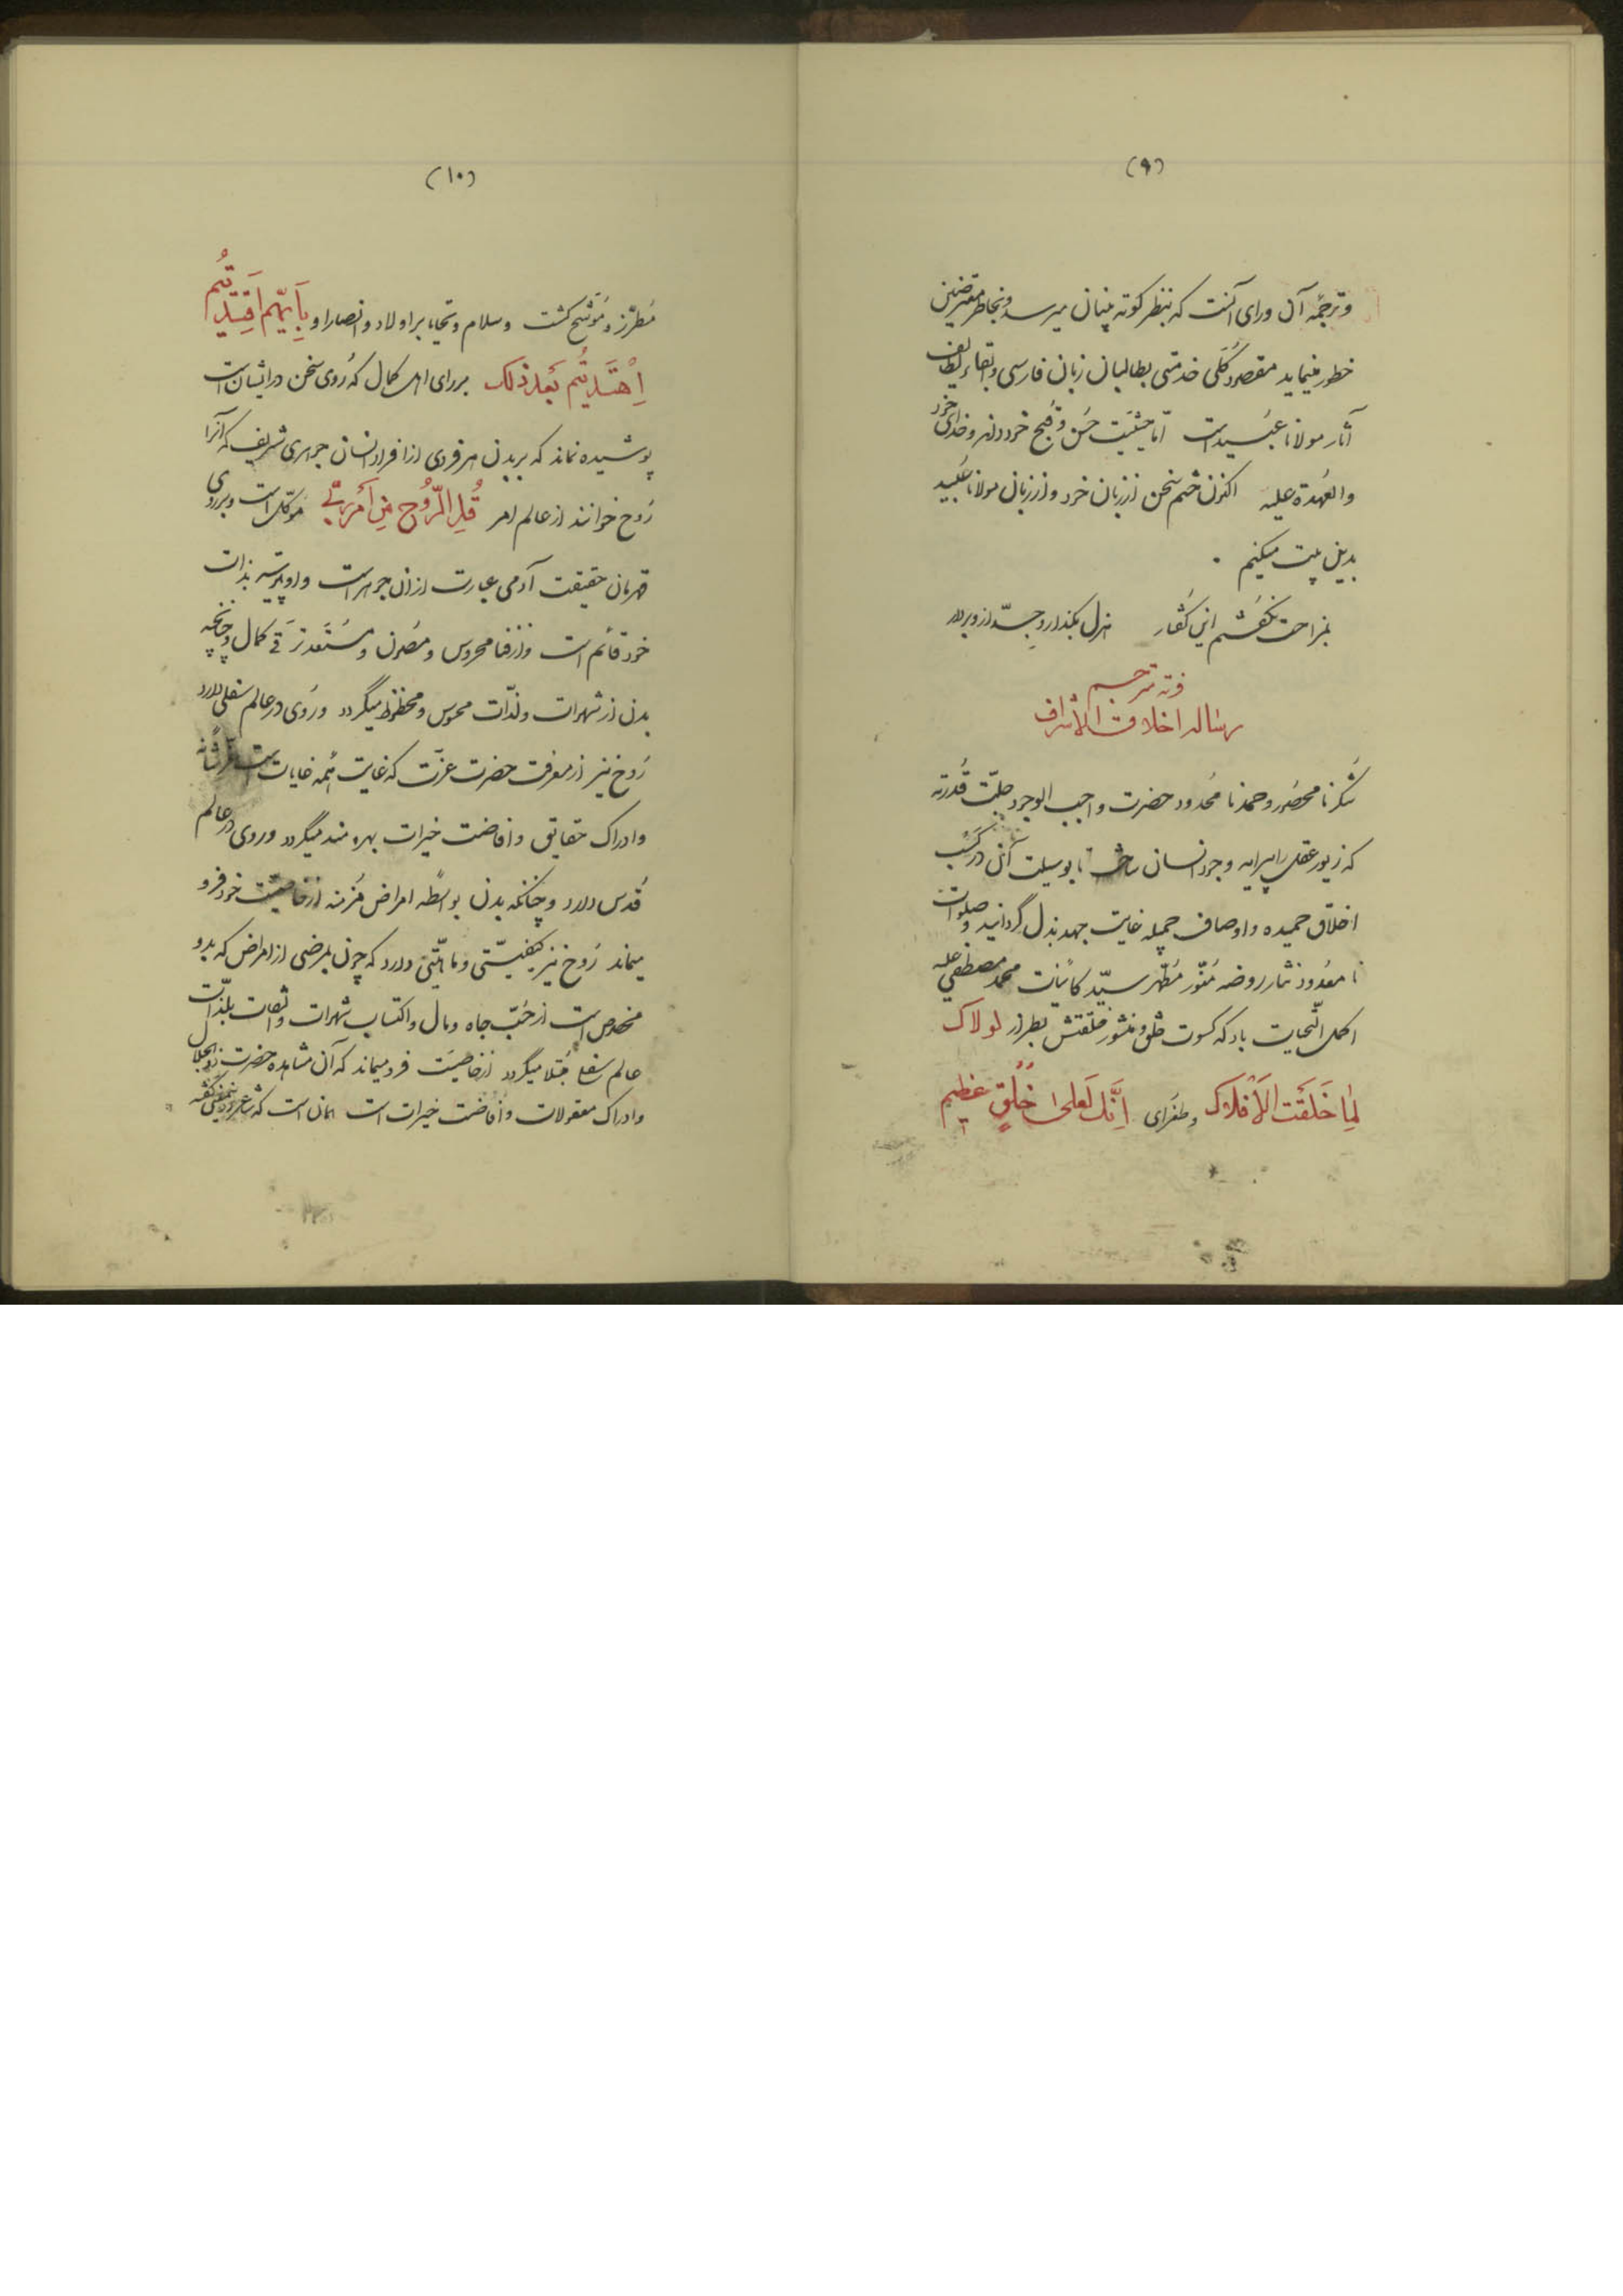 (۹)
و ترجمهٔ آن ورای آنست که بنظر کوته بینان میرسد و بخاطر معترضین
خطور مینماید مقصود کُلّی خدمتی بطالبان زبان فارسی و ابقاء لطایف
آثار مولانا عبید است امّا حیثیت حُسن و قُبح خود داند و خدای خود
والعُهدة علیه اکنون ختم سخن از زبان خود و از زبان مولانا عُبید
بدین بیت میکنم .
بمزاحت نگفتم این گفتار هزل بگذار و جِدّ ازو بردار
رساله اخلاق الاشراف
شُکر نا محصُور و حمد نا مَحدود حضرت واجب الوجود جلّت قُدرته
که زیور عقل را پیرایه وجود انسان ساخت تا بوسیلت آن در کسب
اخلاق حمیده و اوصاف جمیله غایت جهد بذل گردانید و صلوات
نا معدُود نثار روضه مُنوّر مُطهّر سیّد کائنات محمد مصطفی علیه
اکمل التّحایت باد که کسوت خلق و منشور خلقتش بطراز لولاک
لِما خَلَقَت الاَفلاک و طغرای اِنَّک لَعَلیٰ خُلُقٍ عَظیم
(۱۰)
مُطرّز و مُوشّح گشت و سلام و تحایا بر اولاد و انصار او بِاَیِّهِم اقتَدَیتُم
اِهْتَدَیتُم بَعد ذلک بر رای اهل کمال که رُوی سخن در ایشان است
پوشیده نماند که بر بدن هر فردی از افراد انسان جوهری شریف که آنرا
رُوح خوانند از عالم امر قُلِ الرُّوح مِن اَمر رَبّی موکّل است و بر وی
قهرمان حقیقت آدمی عبارت از ان جوهر است و او پیوسته بذات
خود قائم است و از فنا محروس و مصُون و مستَعد ترَقی کمال و چنانچه
بدن از شهوات و لذّات محسوس و محظوظ میگردد و رُوی در عالم سفلی دارد
رُوح نیز از معرفت حضرت عزّت که غایت همّه غایات است عزّ شأنه
و ادراک حقایق و افاضت خیرات بهره مند میگردد و روی در عالم
قُدس دارد و چنانکه بدن بواسطه امراض مُزمنه از خاصیّت خود فرو
میماند رُوح نیز کیفیّتی و ماهیّتی دارد که چون بمرضی از امراض که بدو
مخصُوص است از حُبّ جاه و مال و اکتساب شهوات و التفات بلذّات
عالم سفلی مُبتلا میگردد از خاصیّت فرو میماند که آن مشاهده حضرت ذو الجلال
و ادراک معقولات و افاضت خیرات است همان است که شاعر